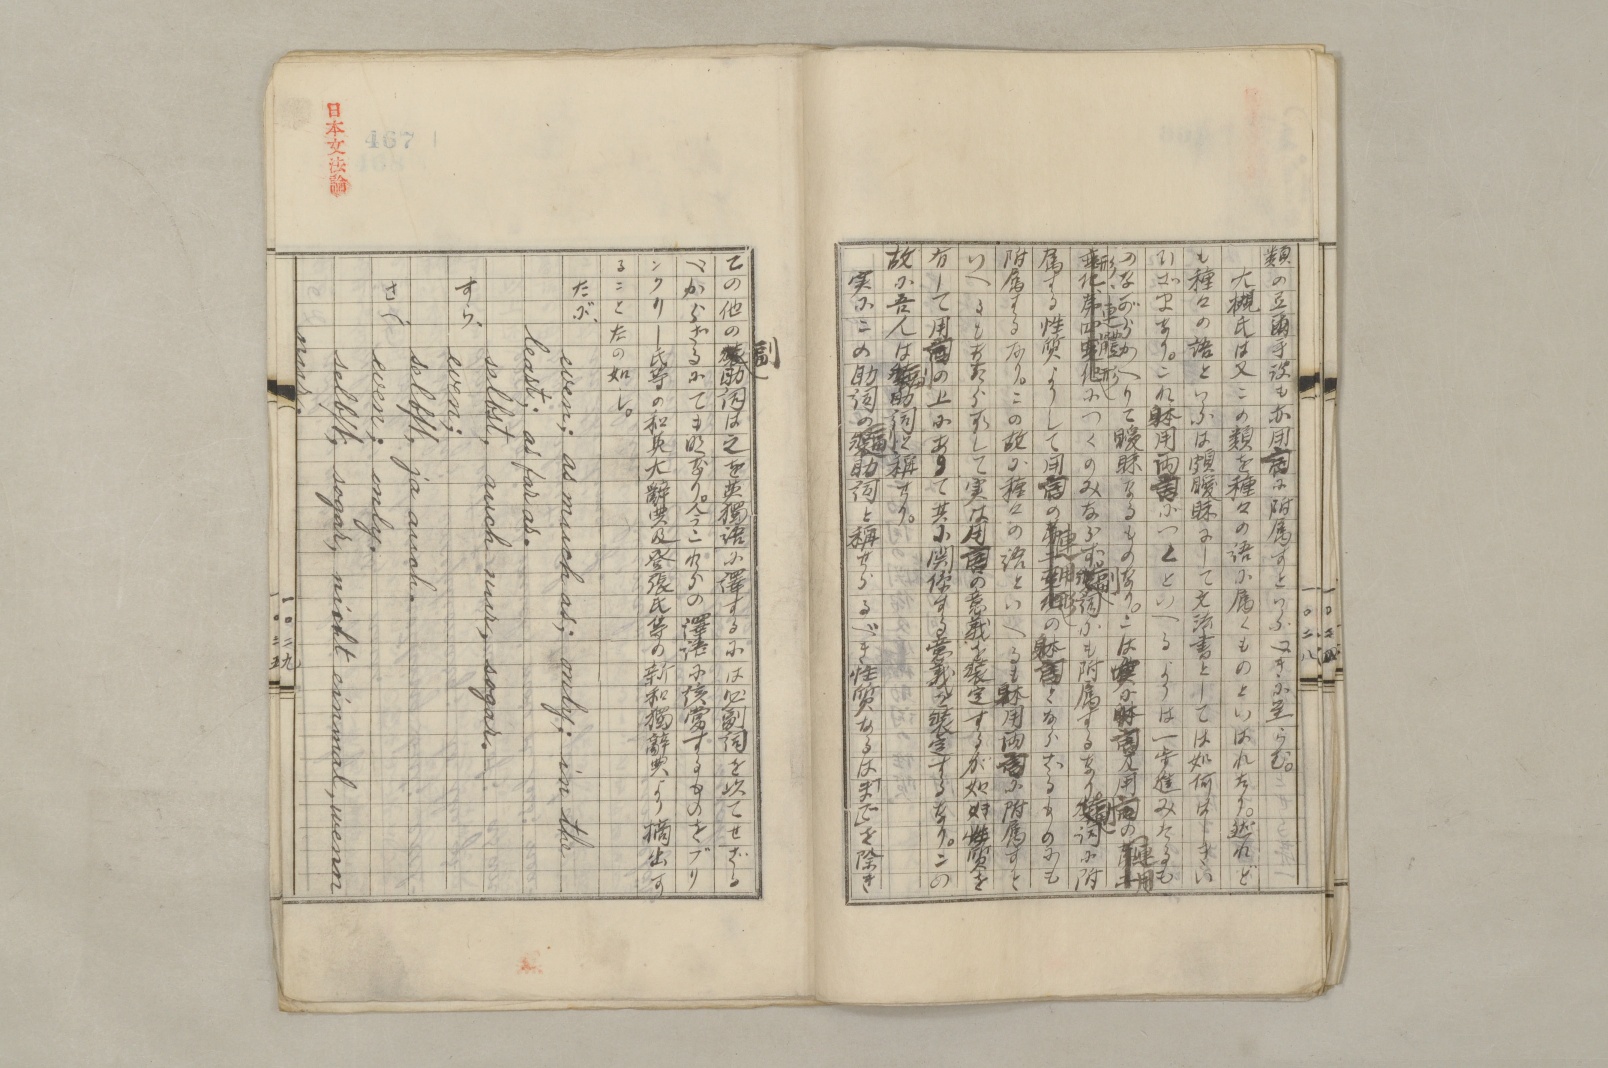 類の弖爾乎波も亦用言に附属すといふべきに至らむ。
大槻氏は又この類を種々の語に属くものといはれたり。然れど
も種々の語といふは頗曖昧にして文法書としては如何はしきい
ひざまなり。これ躰用両言につくといへるよりは一歩進みたるも
のながらかへりて曖昧なるものなり。こは躰言及用言の連用
形、連體形につくのみならず副詞にも附属するなり。副詞に附
属する性質よりして用言の連用形の躰言とならざるものにも
附属するなり。この故に種々の語といへるも躰用両言に附属すと
いへるもあたらずして実は用言の意義を装定するが如き性質を
有して用言の上にありて其に関係する意義を装定するなり。この
故に吾人は副助詞と称せり。
実にこの助詞の副助詞と称せらるべき性質なるは「まで」を除き
ての他の副助詞は之を英獨語に譯するには必副詞を以てせざる
べからざるにても明なり。今これらの譯語に該當するものをブリ
ンクリー氏等の和英大辭典及登張氏等の新和獨辭典より摘出す
ること左の如し。
だに、
even; as much as; only; in the
least; as far as.
selbst, auch nur, sogar.
すら、
even;
selbst, ja auch.
さへ、
even; only.
selbst, sogar, nicht einmal, wenn
nur.
日本文法論
467
一〇二八
一〇二九
副